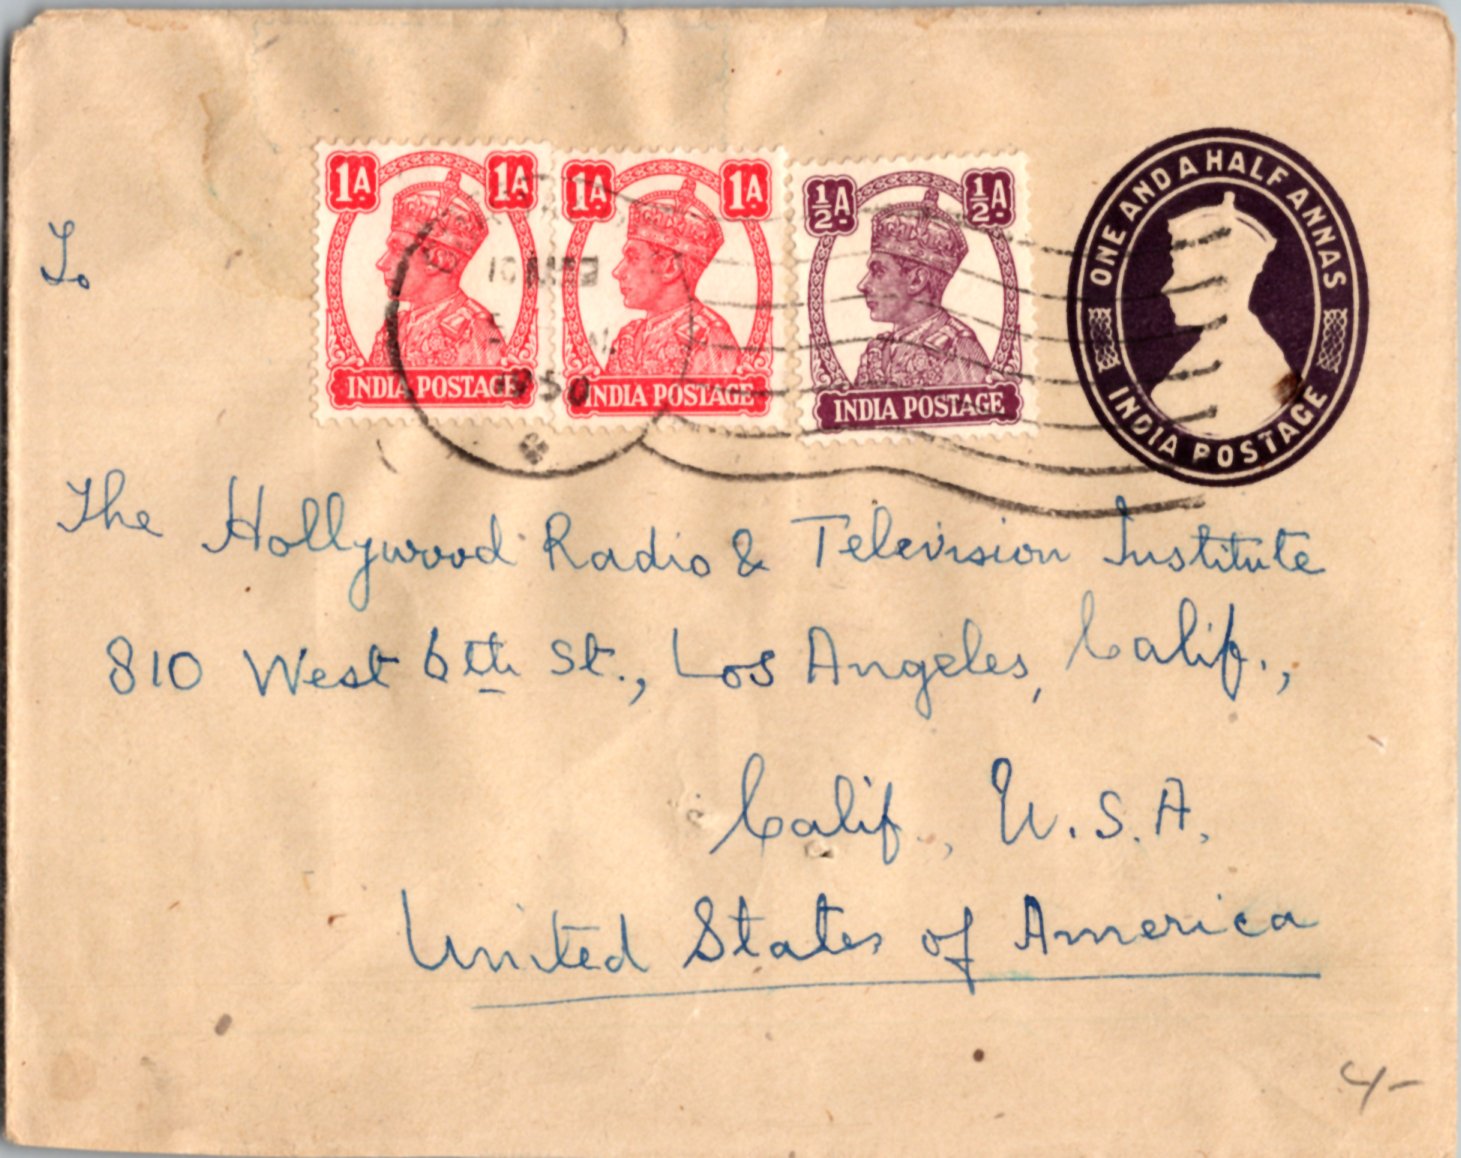 1A. 1A.
INDIA POSTAGE
1A. 1A.
INDIA POSTAGE
½A. ½A.
INDIA POSTAGE
ONE AND A HALF ANNAS
INDIA POSTAGE
10 AM
1950
To
The Hollywood Radio & Television Institute
810 West 6th St., Los Angeles, Calif.,
Calif., U.S.A.
United States of America
4/-